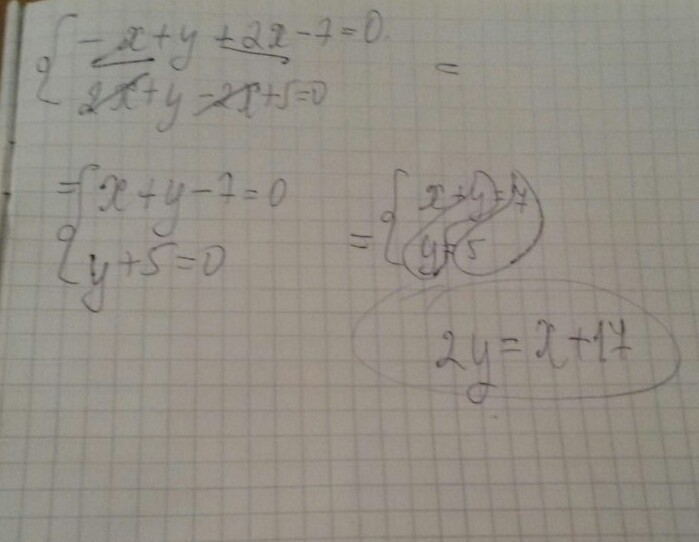 { -x+y+2x-7=0
2x+y-2x+5=0 =
={ x+y-7=0
y+5=0
={ x+y=7
y=5
2y=x+17